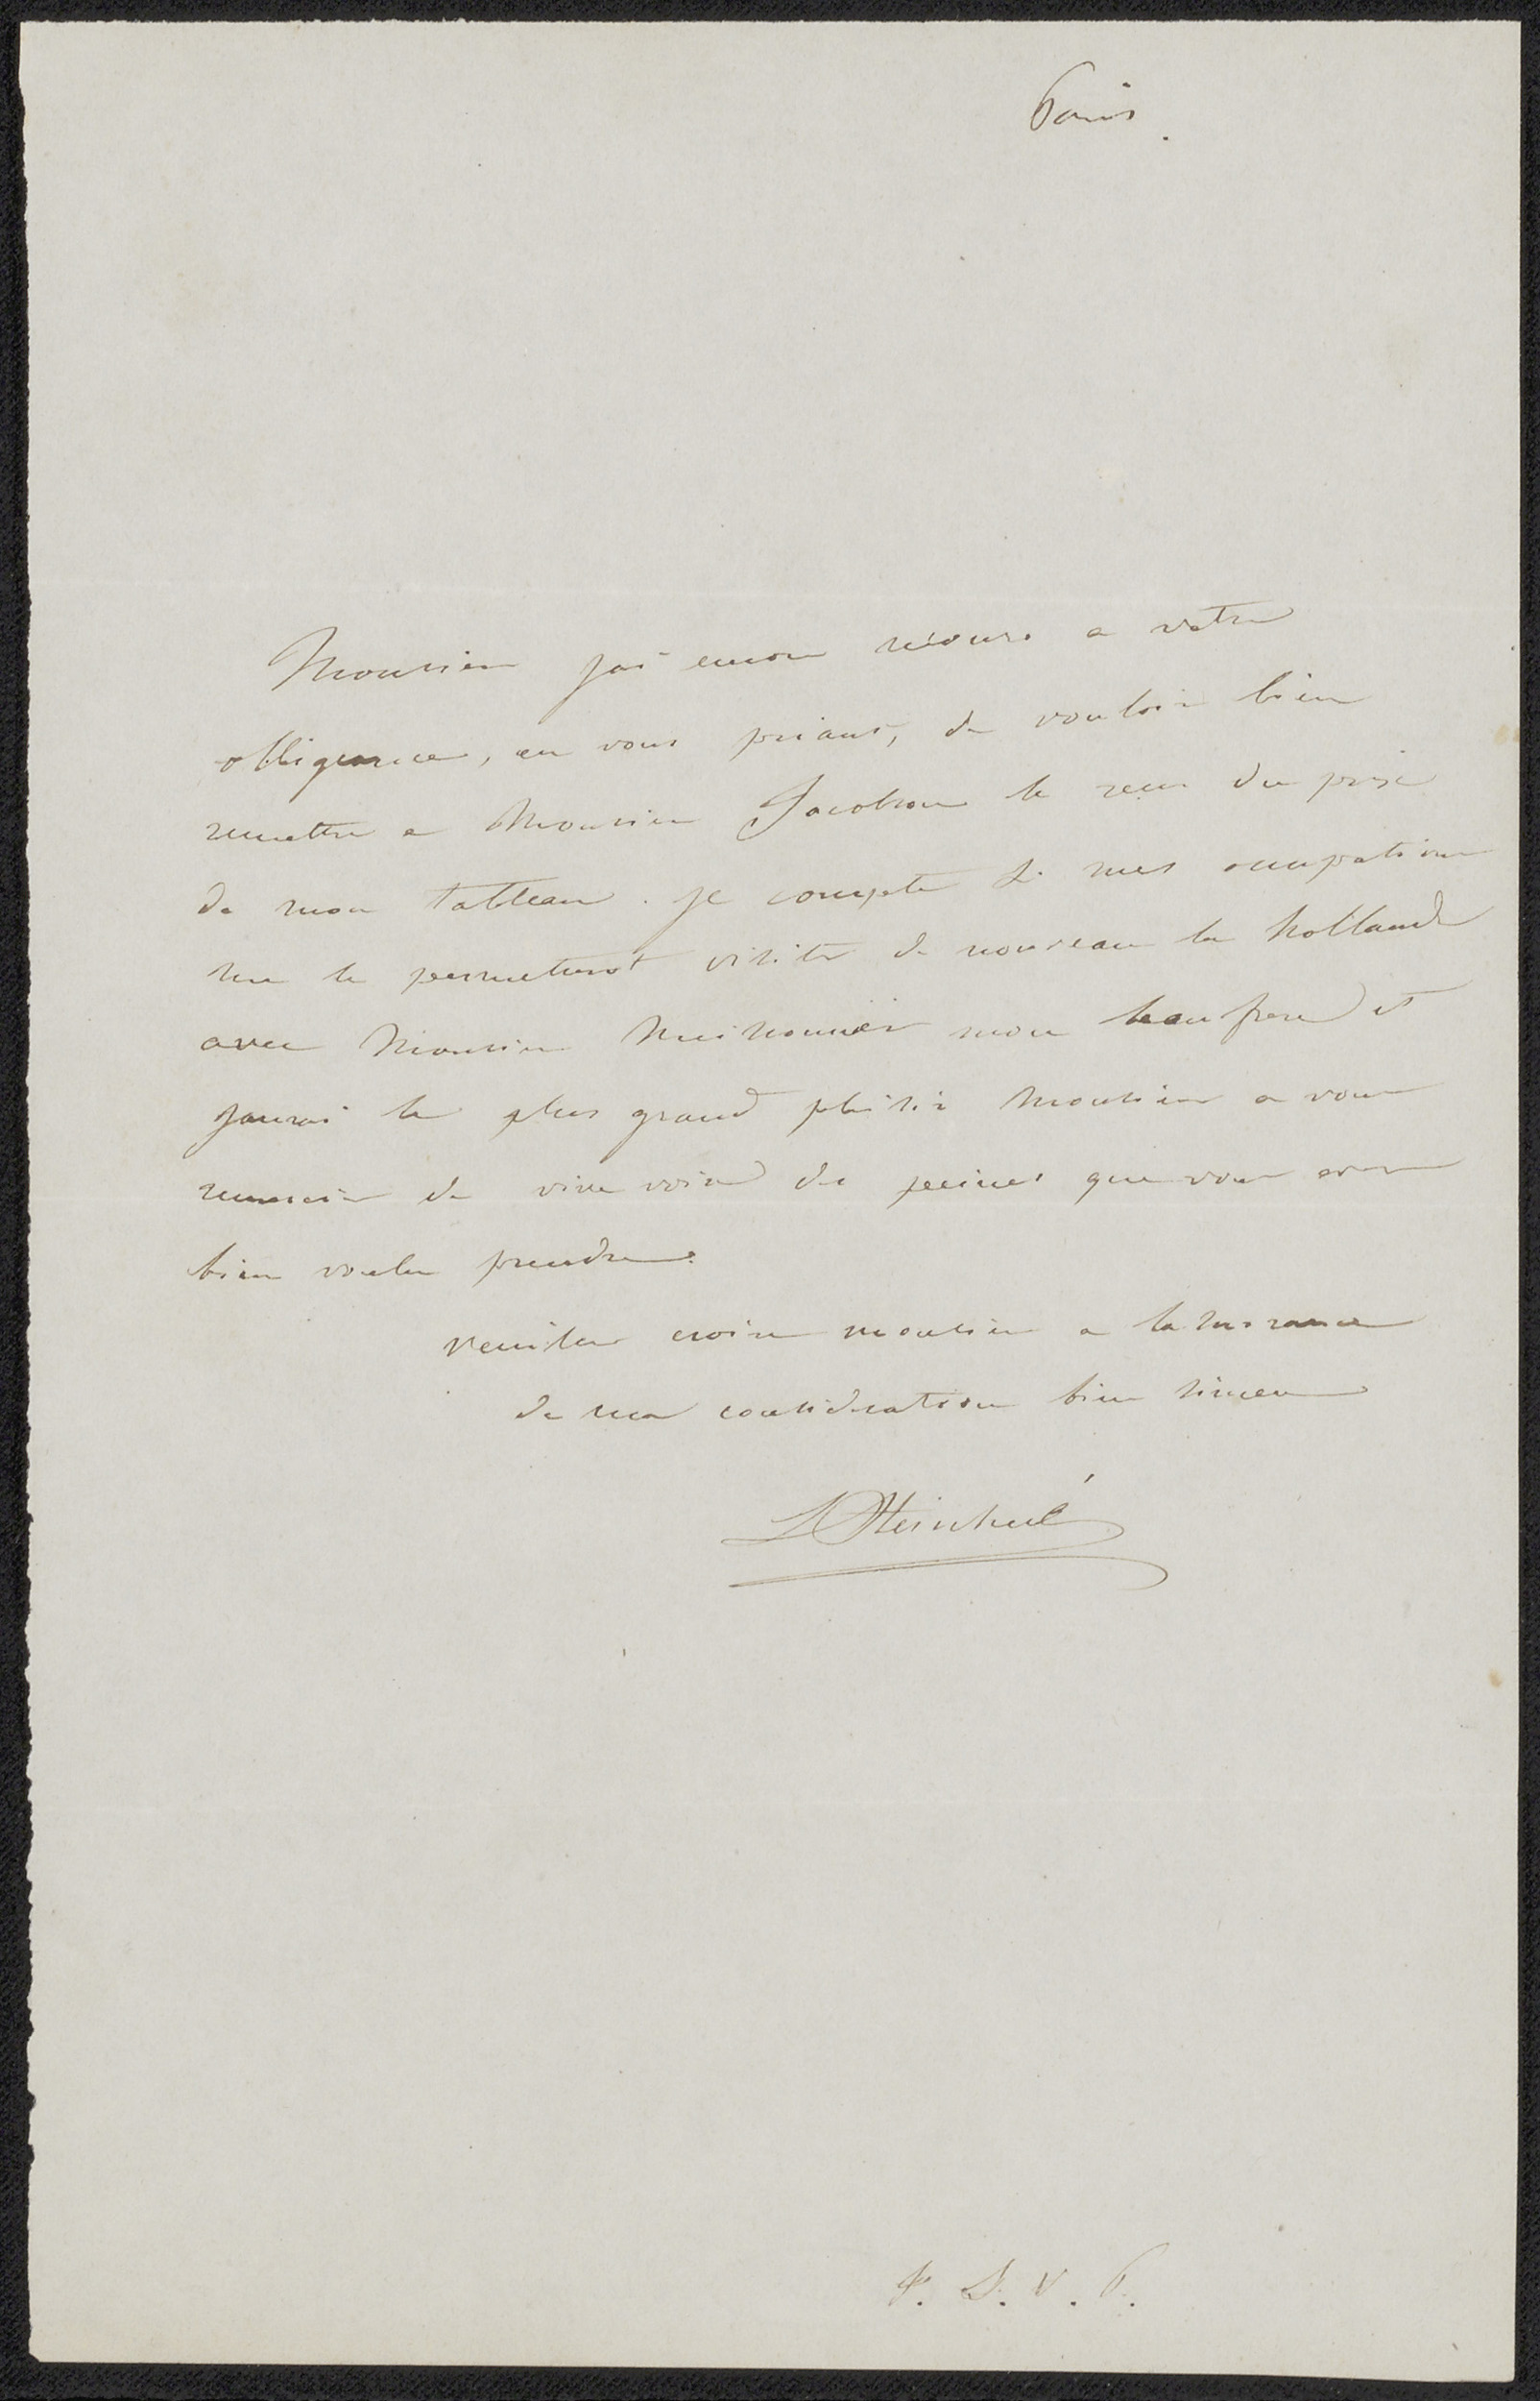 Paris.
Monsieur jai encore récours a votre
obligence, en vous priant, de vouloir bien
remettre a Monsieur Jacobson le recu du prix
de mon tableau. je compte Si mes occupations
me le permeteront visiter de nouveau la hollande
avec Monsieur Meissonnier mon beau frere et
jaurai le plus grand plaisir Monsieur a vous
remercier de vive voix des peines que vous avez
bien voulu prendre.
Veuiller croire monsieur a lassurance
de ma consideration bien sincere
L Steinheil
T. S. V. P.